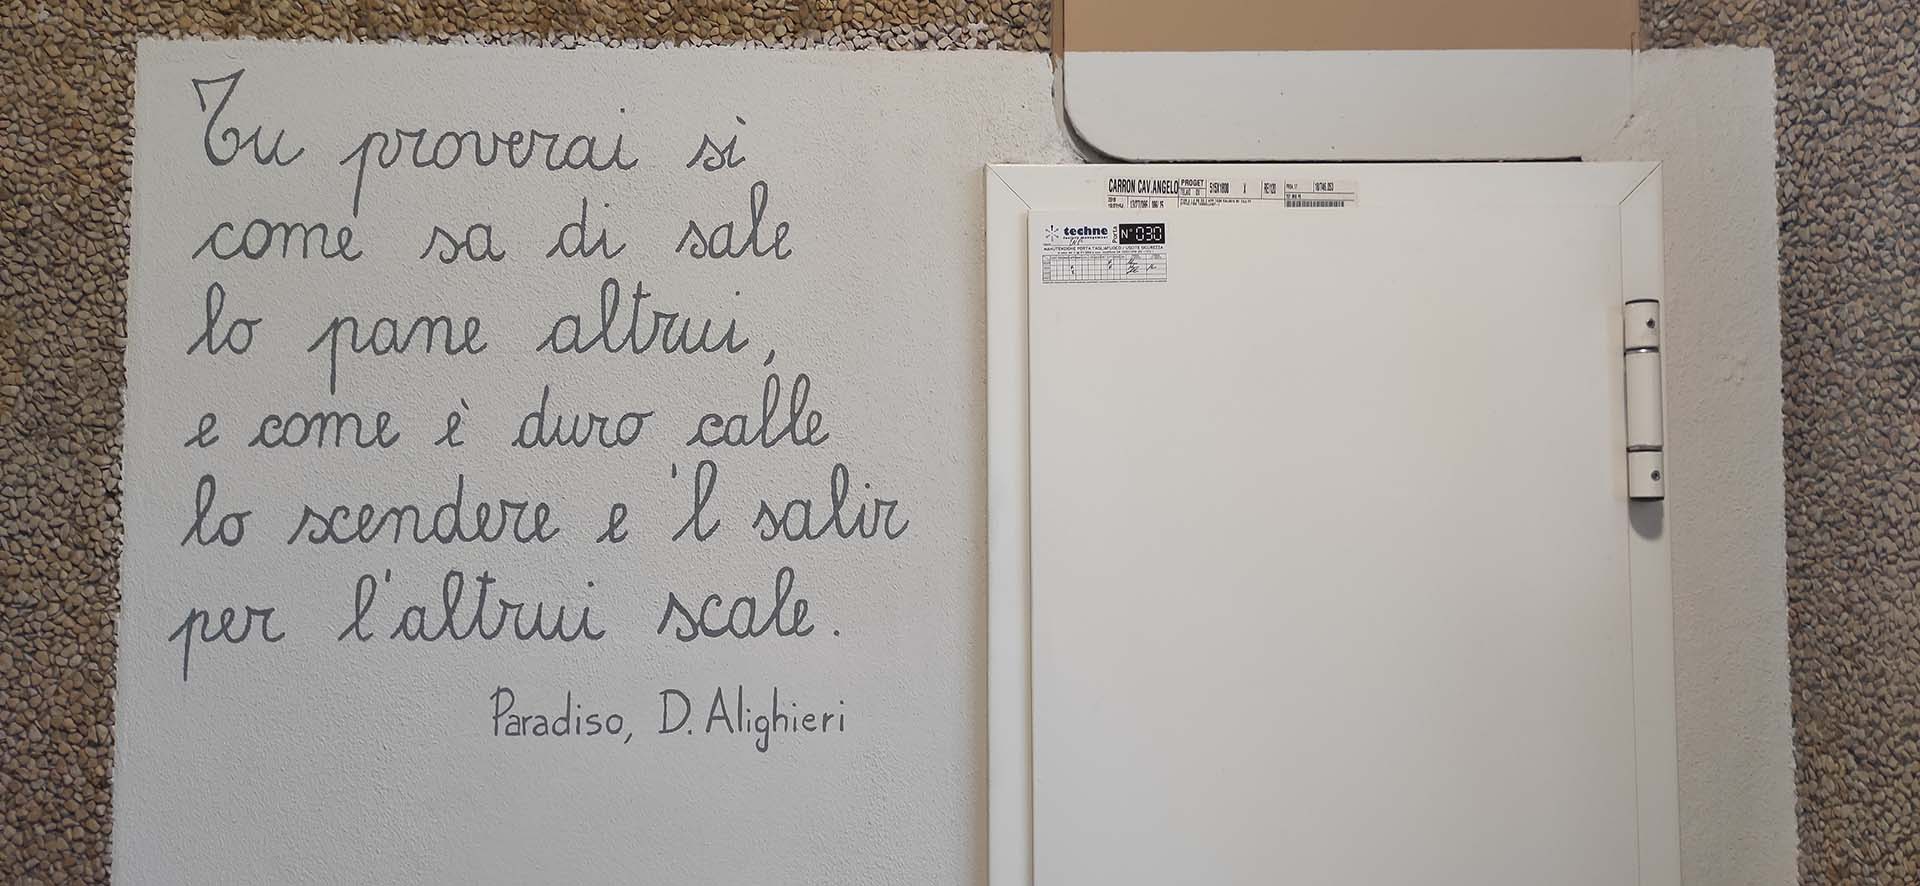 Tu proverai si
come sa di sale
lo pane altrui,
e come è duro calle
lo scendere e 'l salir
per l'altrui scale.
Paradiso, D. Alighieri
CARRON CAV.ANGELO PROGET
techne
Porta N° 030
MANUTENZIONE PORTA TAGLIAFUOCO / USCITE SICUREZZA